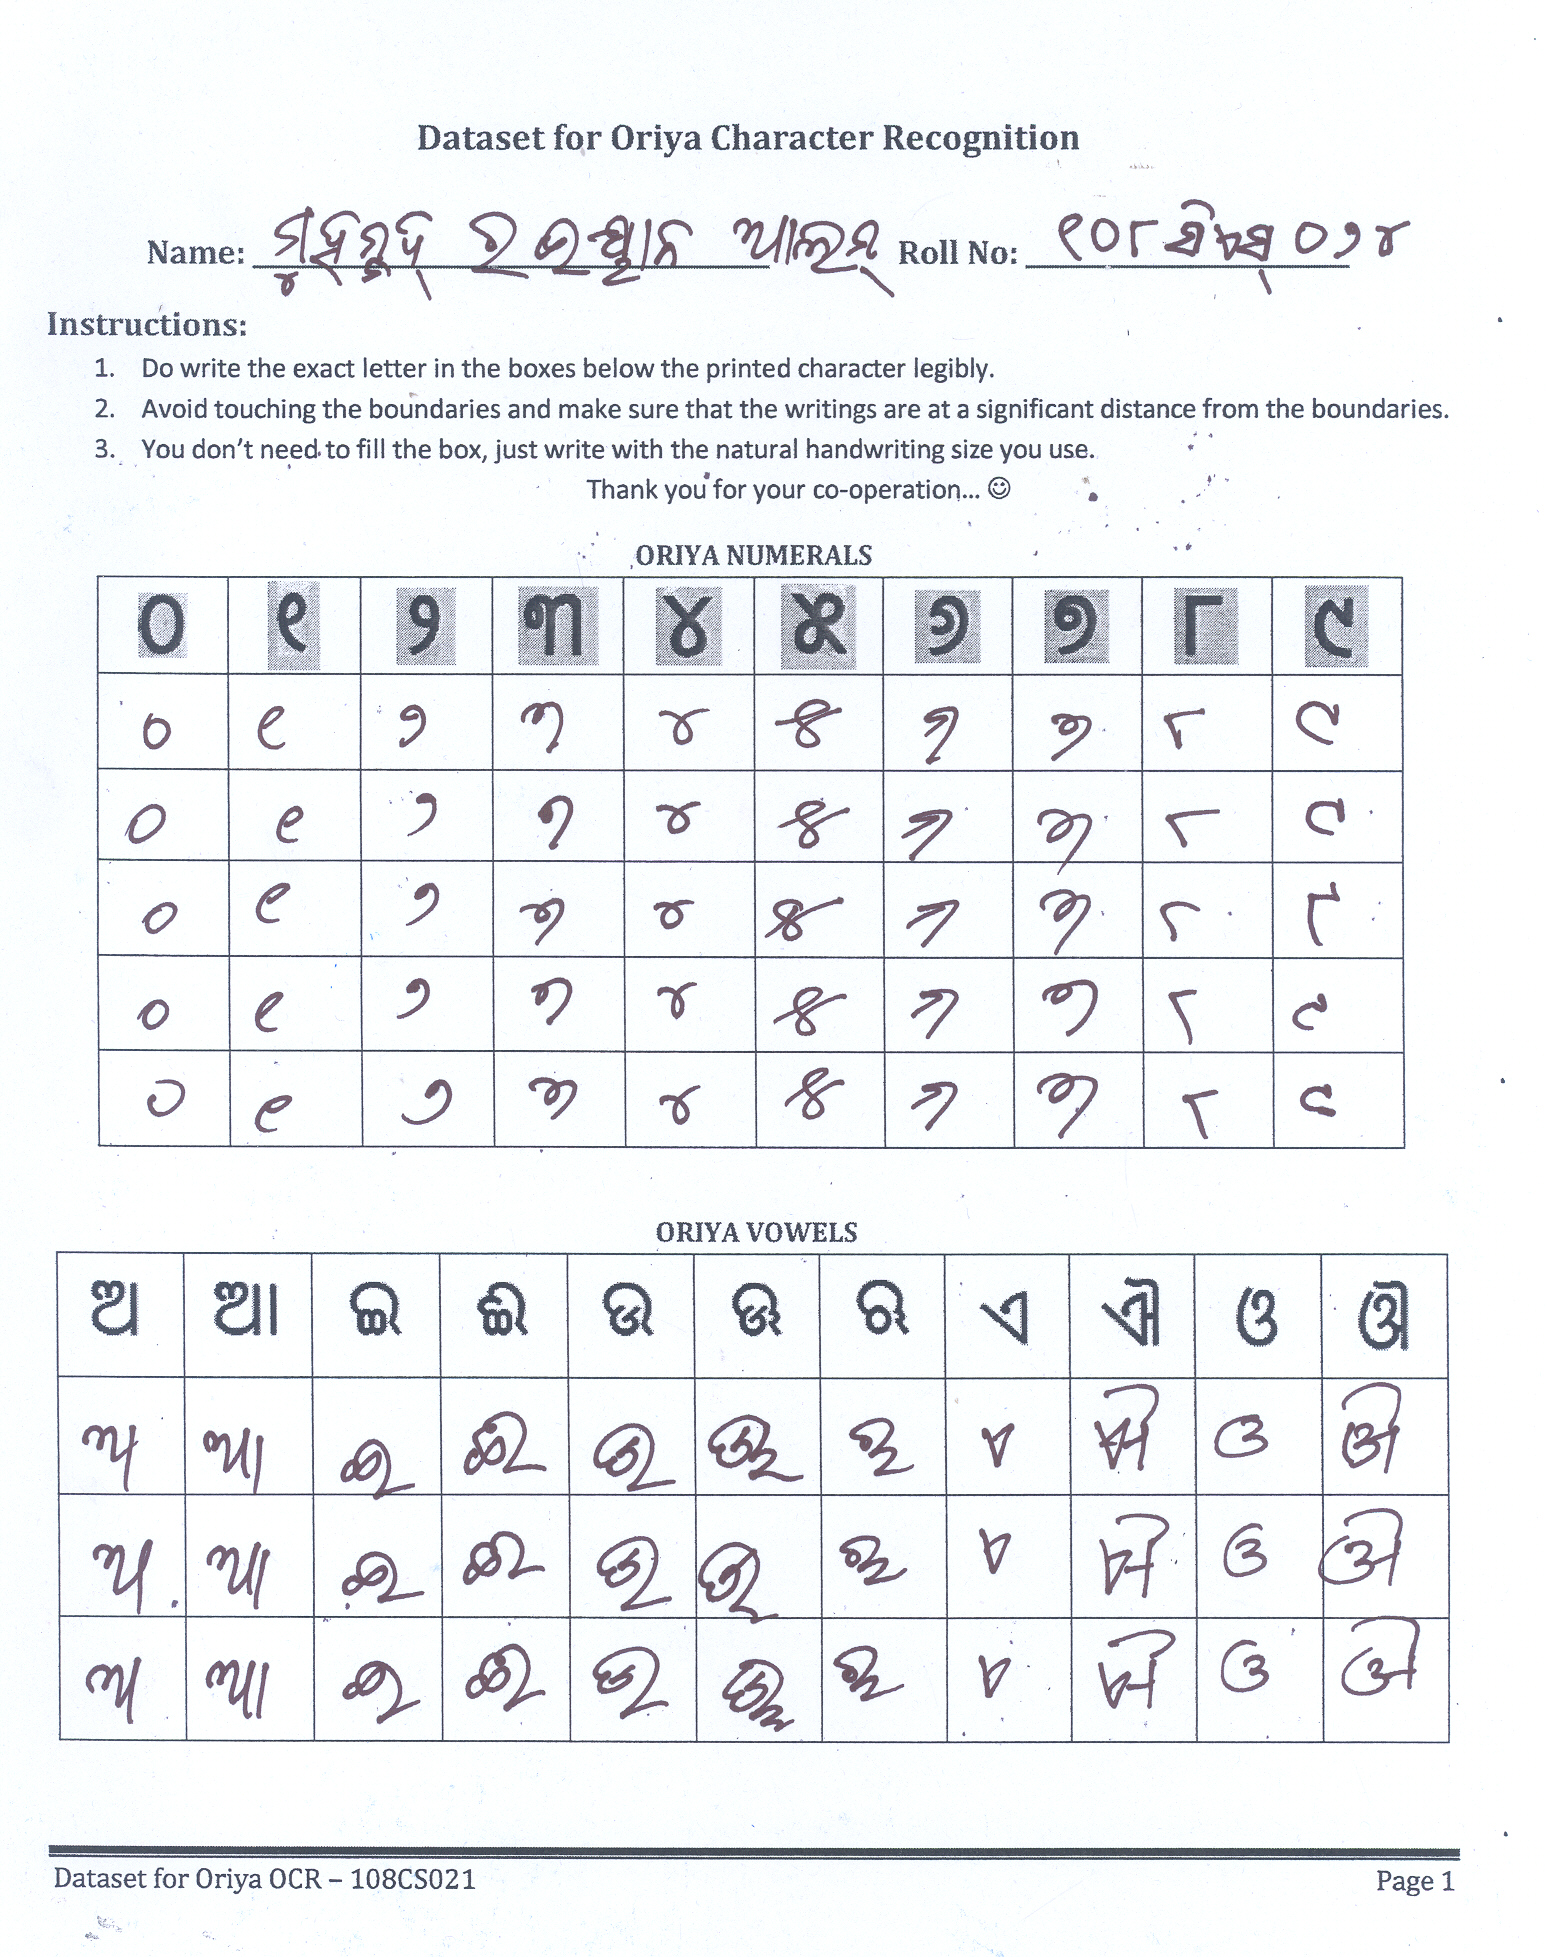 Dataset for Oriya Character Recognition
Name: ଆଲମ୍ Roll No: ୧୦୮ସିଏସ୍୦୨୪
Instructions:
1. Do write the exact letter in the boxes below the printed character legibly.
2. Avoid touching the boundaries and make sure that the writings are at a significant distance from the boundaries.
3. You don't need to fill the box, just write with the natural handwriting size you use.
Thank you for your co-operation... ☺
ORIYA NUMERALS
୦ ୧ ୨ ୩ ୪ ୫ ୬ ୭ ୮ ୯
୦ ୧ ୨ ୩ ୪ ୫ ୬ ୭ ୮ ୯
୦ ୧ ୨ ୩ ୪ ୫ ୬ ୭ ୮ ୯
୦ ୧ ୨ ୩ ୪ ୫ ୬ ୭ ୮ ୯
୦ ୧ ୨ ୩ ୪ ୫ ୬ ୭ ୮ ୯
୦ ୧ ୨ ୩ ୪ ୫ ୬ ୭ ୮ ୯
ORIYA VOWELS
ଅ ଆ ଇ ଈ ଉ ଊ ଋ ଏ ଐ ଓ ଔ
ଅ ଆ ଇ ଈ ଉ ଊ ଋ ଏ ଐ ଓ ଔ
ଅ ଆ ଇ ଈ ଉ ଊ ଋ ଏ ଐ ଓ ଔ
ଅ ଆ ଇ ଈ ଉ ଊ ଋ ଏ ଐ ଓ ଔ
Dataset for Oriya OCR – 108CS021 Page 1